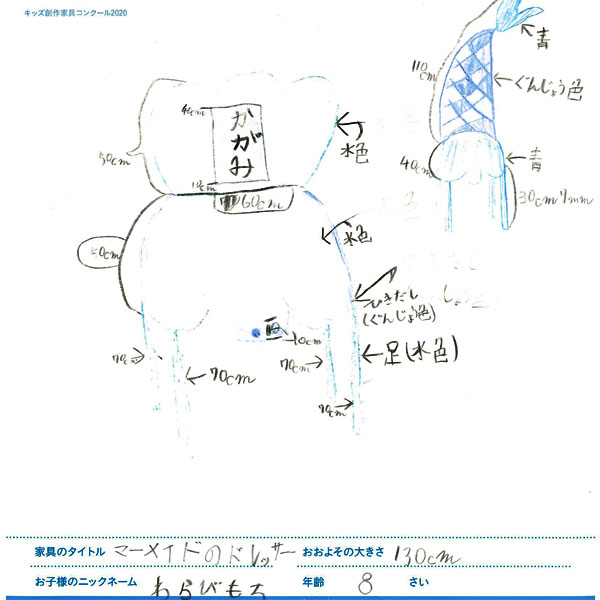 キッズ創作家具コンクール2020
青
110cm
ぐんじょう色
40cm
かがみ
50cm
水色
青
10cm
40cm
60cm
30cm7mm
水色
50cm
ひきだし
(ぐんじょう色)
10cm
70cm
70cm
70cm
足(水色)
70cm
家具のタイトル マーメイドのドレッサー おおよその大きさ 130cm
お子様のニックネーム わらびもち 年齢 8 さい